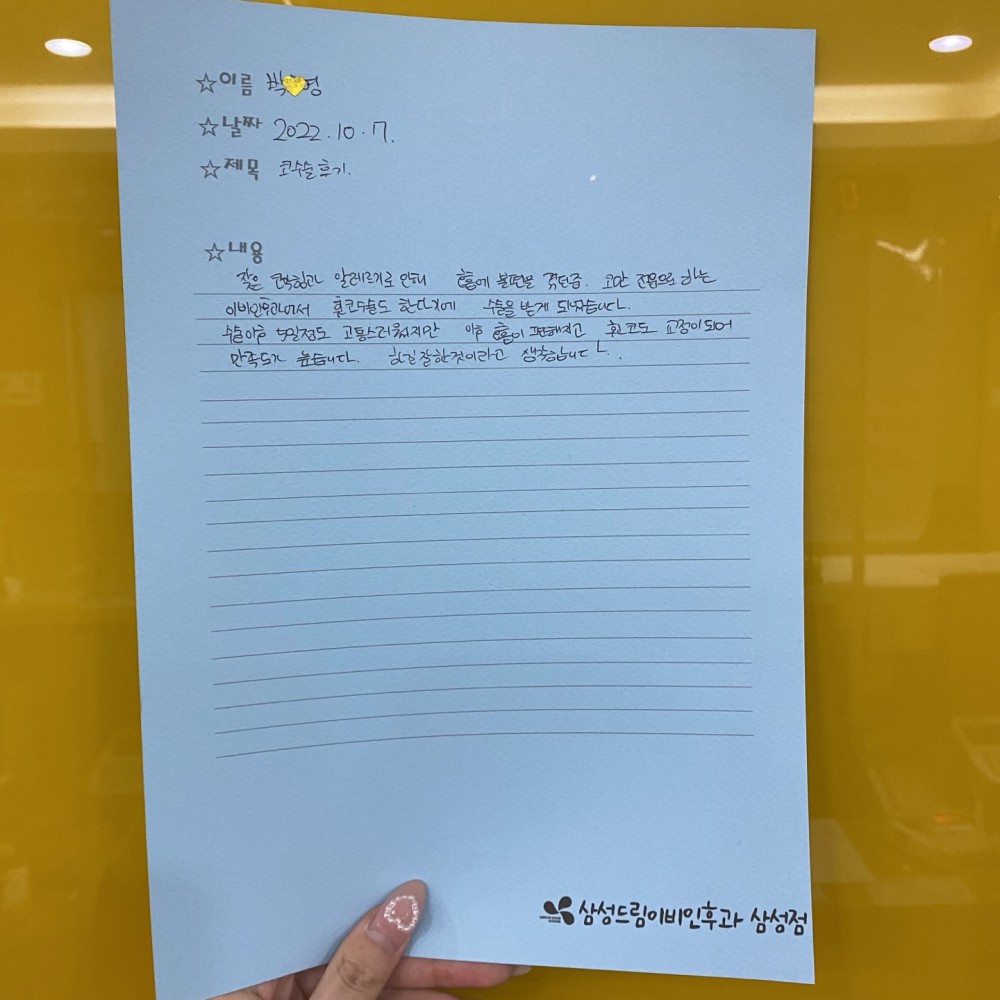 ☆이름 박💛영
☆날짜 2022.10.7.
☆제목 코수술후기.
☆내용
잦은 코막힘과 알레르기로 인해 호흡에 불편을 겪던중. 코만 전문으로 하는
이비인후과에서 휜코수술도 한다기에 수술을 받게 되었습니다.
수술이후 5일정도 고통스러웠지만 이후 호흡이 편해지고 휜코도 교정이되어
만족도가 높습니다. 하길 잘한것이라고 생각합니다.
삼성드림이비인후과 삼성점